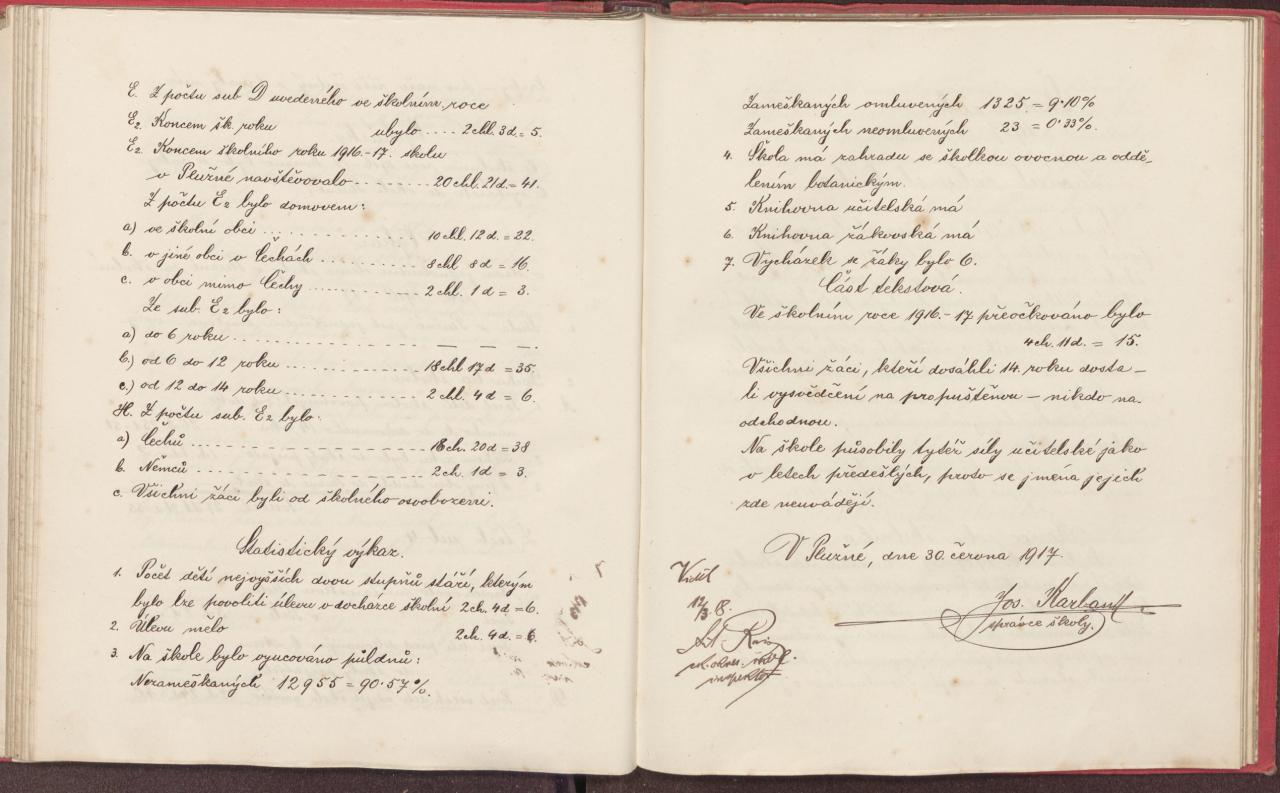 E. Z počtu sub D uvedeného ve školním roce
E₂. Koncem šk. roku ubylo .... 2 chl. 3 d. = 5.
E₂. Koncem školního roku 1916.-17. školu
v Plužné navštěvovalo ........ 20 chl. 21 d. = 41.
Z počtu E₂ bylo domovem:
a) ve školní obci .............. 10 chl. 12 d. = 22.
b. v jiné obci v Čechách ......... 8 chl 8 d = 16.
c. v obci mimo Čechy ............ 2 chl. 1 d = 3.
Ze sub. E₂ bylo:
a) do 6 roku .................. — — —.
b.) od 6 do 12 roku ............ 18 chl 17 d = 35.
c.) od 12 do 14 roku ........... 2 chl. 4 d = 6.
H. Z počtu sub. E₂ bylo.
a) Čechů .................... 18 ch. 20 d = 38
b. Němců .................... 2 ch. 1 d = 3.
c. Všichni žáci byli od školného osvobozeni.
Statistický výkaz.
1. Počet dětí nejvyšších dvou stupňů stáří, kterým
bylo lze povoliti úlevu v docházce školní 2 ch. 4 d. = 6.
2. Úlevu mělo 2 ch. 4 d. = 6.
3. Na škole bylo vyucováno půldnů:
Nezameškaných 12955 = 90·57%.
Zameškaných omluvených 1325 = 9·10%
Zameškaných neomluvených 23 = 0·33%.
4. Škola má zahradu se školkou ovocnou a oddě-
lením botanickým.
5. Knihovna učitelská má
6. Knihovna žákovská má
7. Vycházek se žáky bylo 6.
Část tekstová.
Ve školním roce 1916.-17 přeočkováno bylo
4 ch. 11 d. = 15.
Všichni žáci, kteří dosáhli 14. roku dosta-
li vysvědčení na propuštěnou — nikdo na
odchodnou.
Na škole působily tytéž síly učitelské jako
v letech předešlých, proto se jména jejich
zde neuvádějí.
V Plužné, dne 30. června 1917.
Jos. Karban
správce školy.
Viděl
12/3 18.
okres. škol.
inspektor